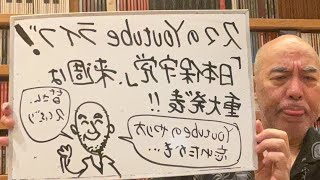 久々のYoutubeライブ!
「日本保守党」、来週は
重大発表!!
Youtubeのやり方
忘れたかも…